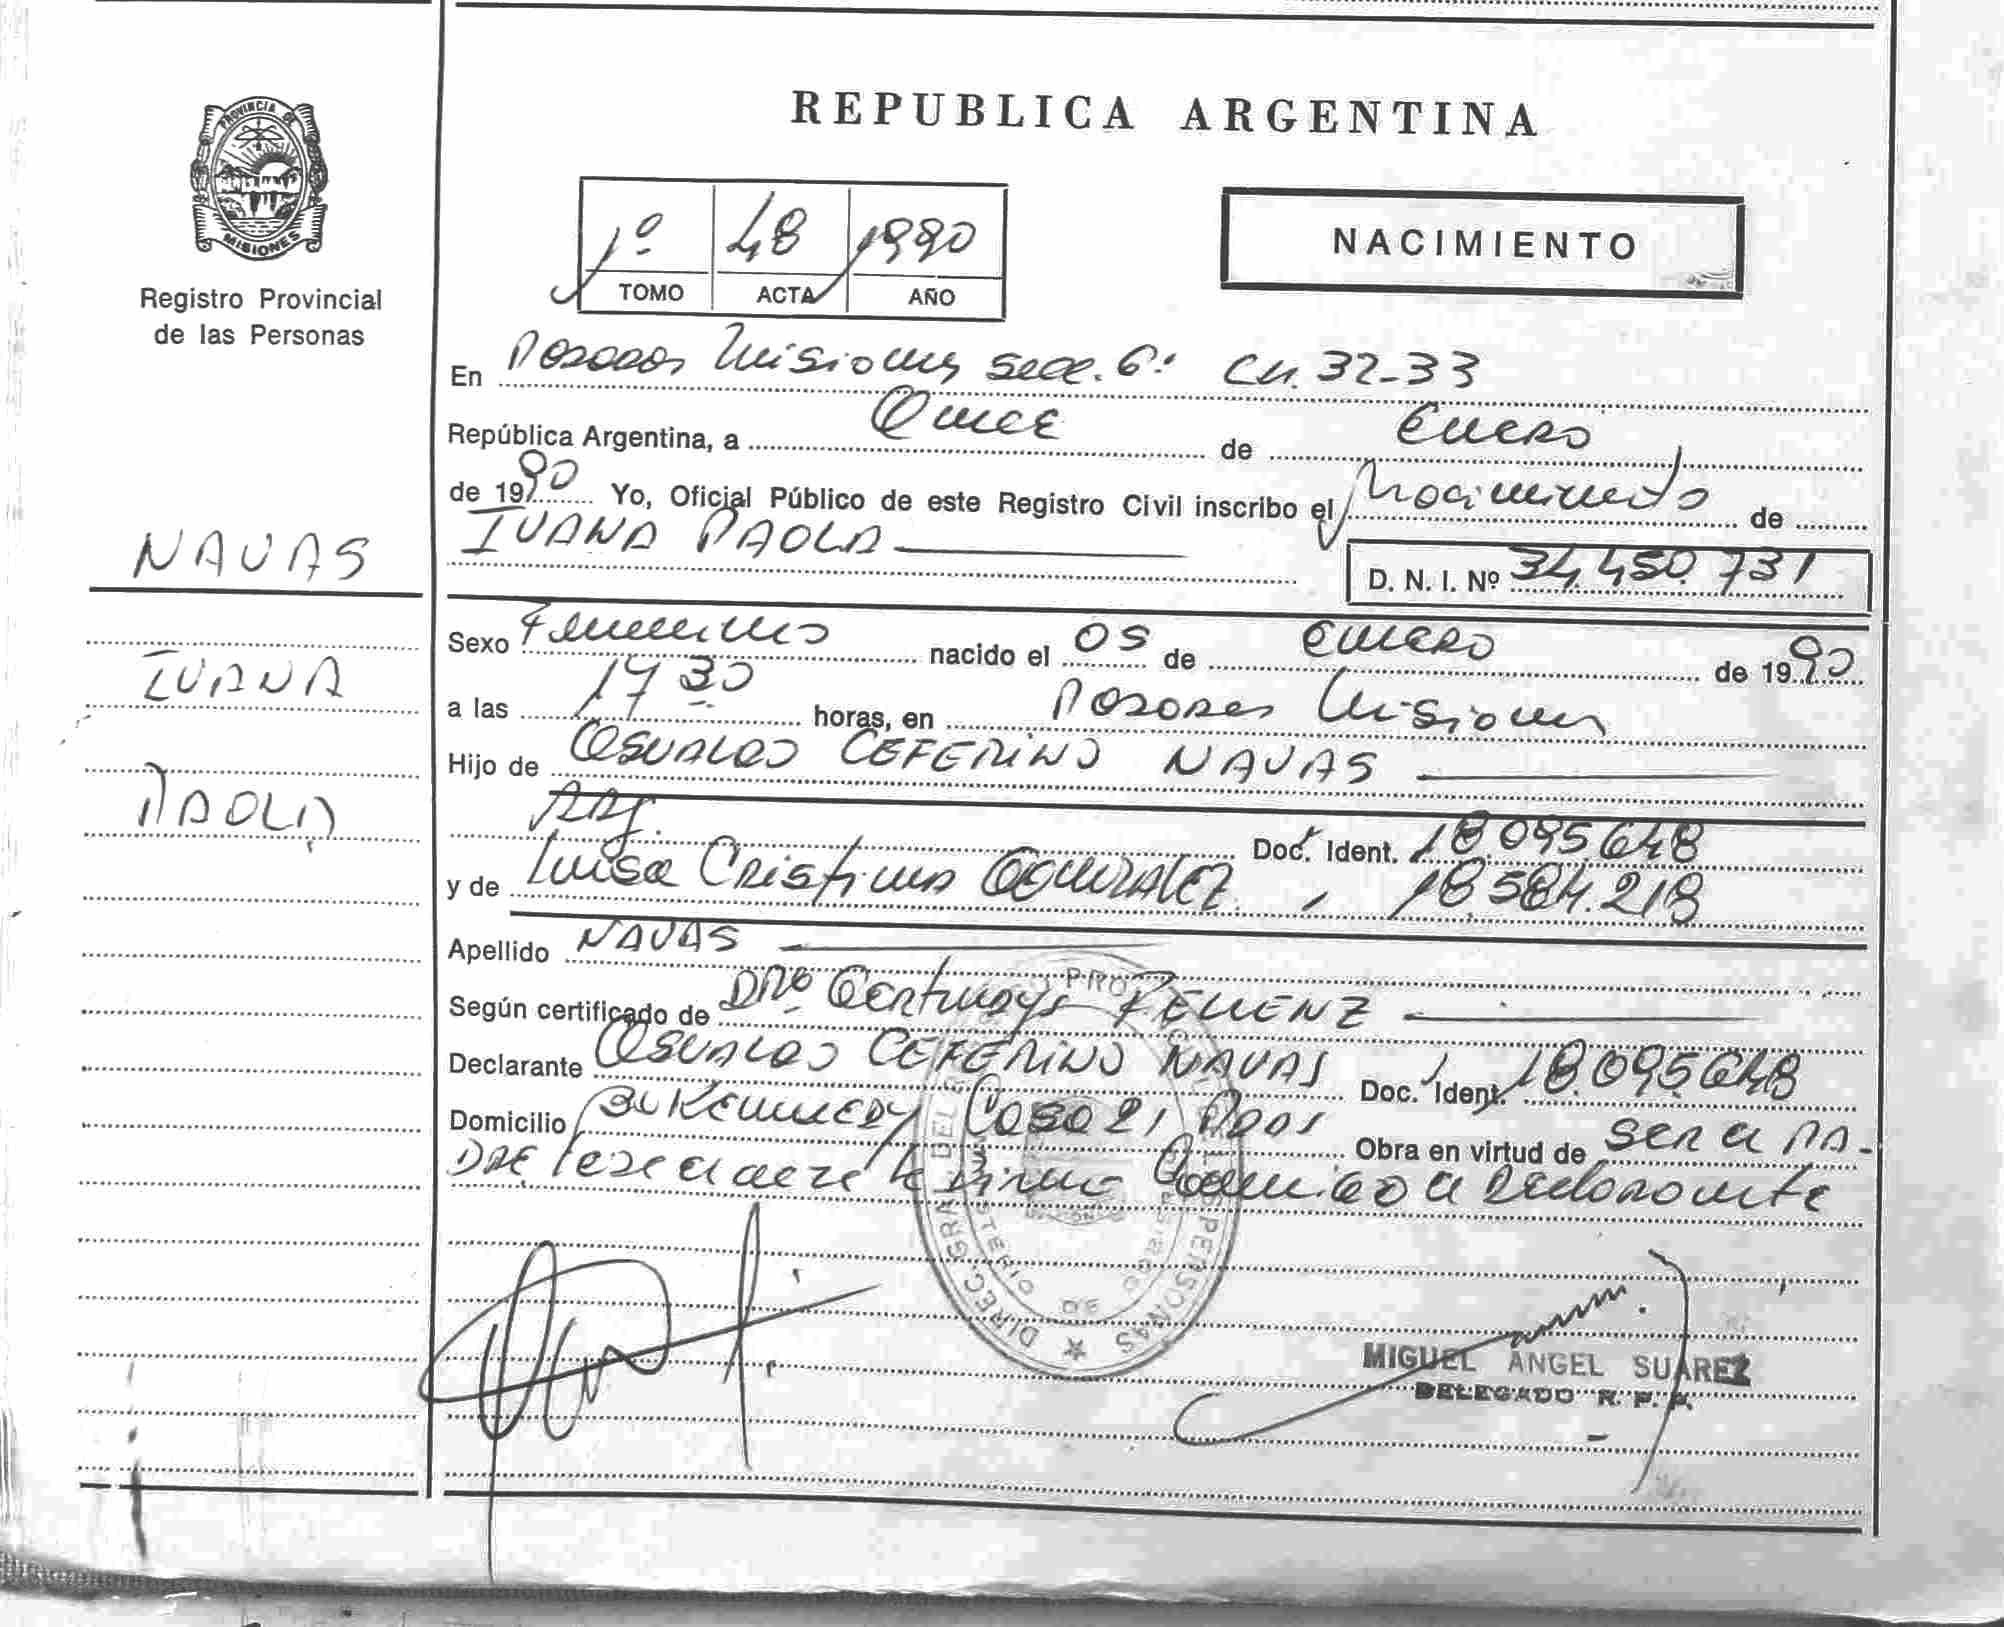 REPUBLICA ARGENTINA
PROVINCIA DE
MISIONES
Registro Provincial
de las Personas
1º 48 1990
TOMO ACTA AÑO
NACIMIENTO
En Posadas Misiones secc. 6º 32-33
República Argentina, a Quince de Enero
de 1990 Yo, Oficial Público de este Registro Civil inscribo el Nacimiento de
IVANA PAOLA
D. N. I. Nº 34.450.731
NAVAS
IVANA
PAOLA
Sexo Femenino nacido el 05 de ENERO de 1990
a las 17 30 horas, en Posadas Misiones
Hijo de OSVALDO CEFERINO NAVAS
Arg. Doc. Ident. 18.095.648
y de Luisa Cristina GONZALEZ 18.584.218
Apellido NAVAS
Según certificado de DRA
Declarante OSVALDO CEFERINO NAVAS Doc. Ident. 18.095.648
Domicilio Bº KENNEDY Casa 21 Pdas Obra en virtud de SER el PA-
DRE leida el acta la firma Conmigo el declarante
DIREC. GRAL. DEL PERSONAS
MIGUEL ANGEL SUAREZ
DELEGADO R. P. P.